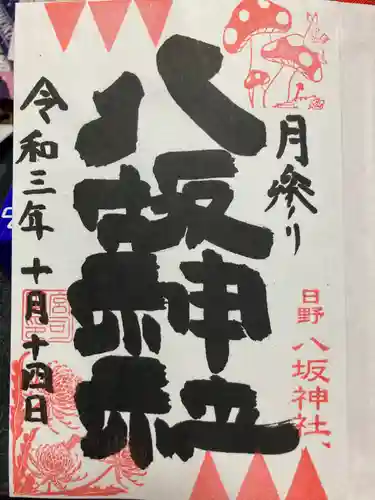 月参り
日野 八坂神社
八坂神社
令和三年十月十四日